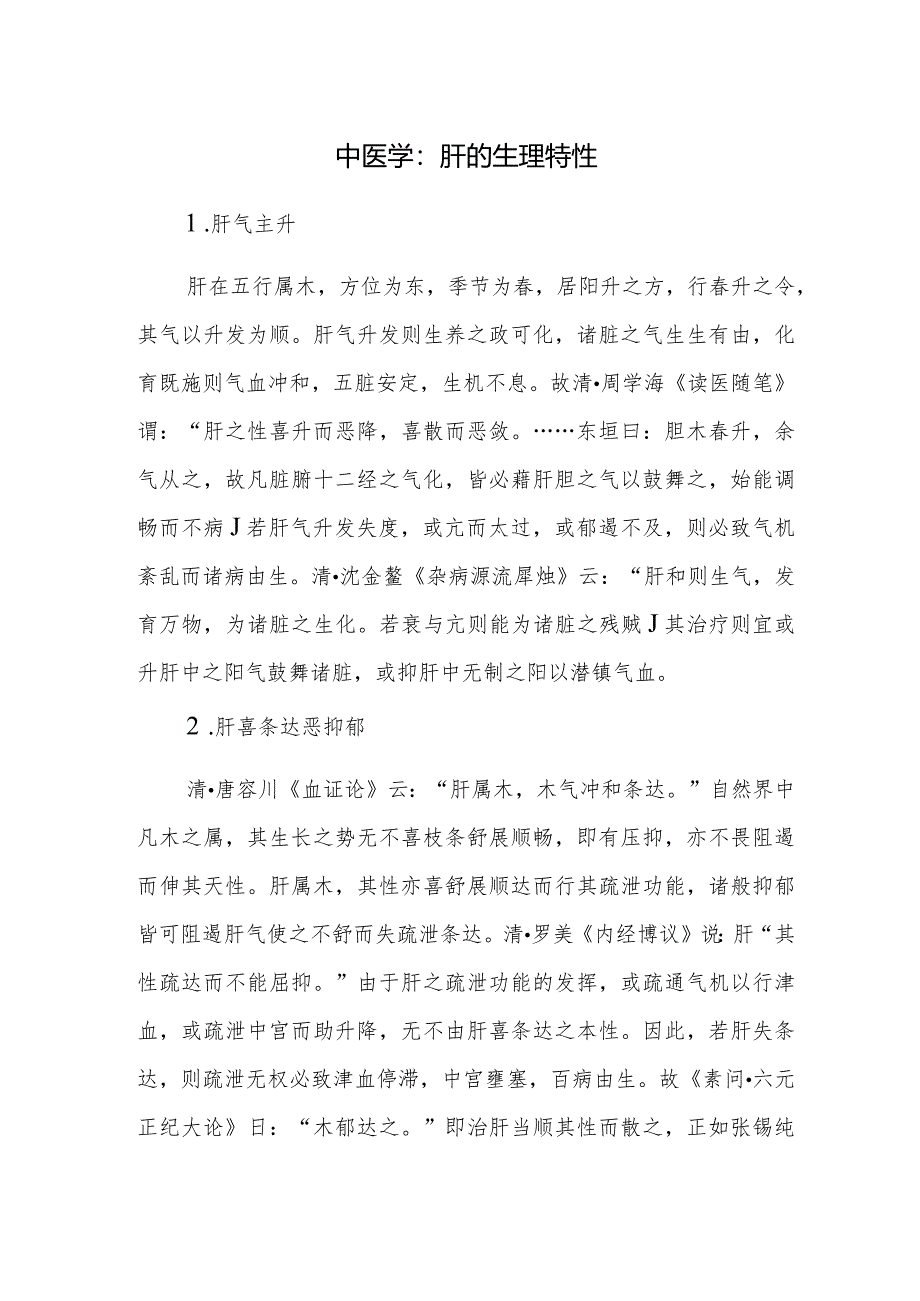 中医学：肝的生理特性
1 .肝气主升
肝在五行属木，方位为东，季节为春，居阳升之方，行春升之令，
其气以升发为顺。肝气升发则生养之政可化，诸脏之气生生有由，化
育既施则气血冲和，五脏安定，生机不息。故清•周学海《读医随笔》
谓：“肝之性喜升而恶降，喜散而恶敛。……东垣曰：胆木春升，余
气从之，故凡脏腑十二经之气化，皆必藉肝胆之气以鼓舞之，始能调
畅而不病J若肝气升发失度，或亢而太过，或郁遏不及，则必致气机
紊乱而诸病由生。清•沈金鳌《杂病源流犀烛》云：“肝和则生气，发
育万物，为诸脏之生化。若衰与亢则能为诸脏之残贼J其治疗则宜或
升肝中之阳气鼓舞诸脏，或抑肝中无制之阳以潜镇气血。
2 .肝喜条达恶抑郁
清•唐容川《血证论》云：“肝属木，木气冲和条达。”自然界中
凡木之属，其生长之势无不喜枝条舒展顺畅，即有压抑，亦不畏阻遏
而伸其天性。肝属木，其性亦喜舒展顺达而行其疏泄功能，诸般抑郁
皆可阻遏肝气使之不舒而失疏泄条达。清•罗美《内经博议》说：肝“其
性疏达而不能屈抑。”由于肝之疏泄功能的发挥，或疏通气机以行津
血，或疏泄中宫而助升降，无不由肝喜条达之本性。因此，若肝失条
达，则疏泄无权必致津血停滞，中宫壅塞，百病由生。故《素问•六元
正纪大论》日：“木郁达之。”即治肝当顺其性而散之，正如张锡纯